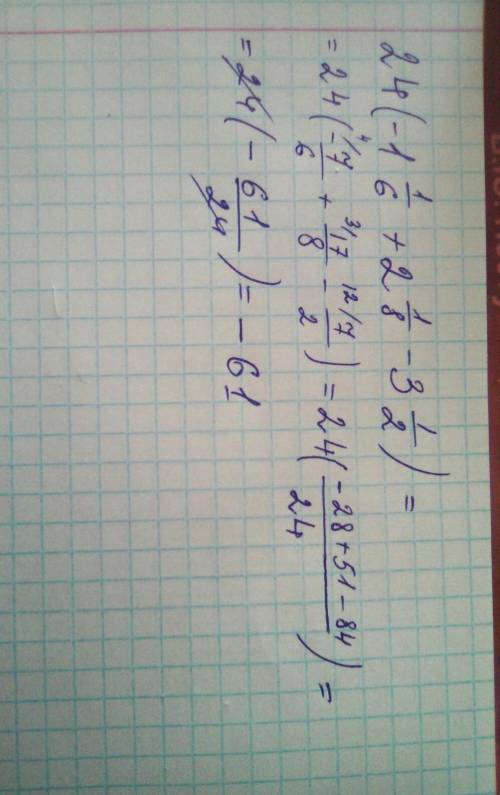 24(-1 1/6 + 2 1/8 - 3 1/2) =
= 24(4/ -7/6 + 3/ 17/8 - 12/ 7/2) = 24((-28+51-84)/24) =
= 24(- 61/24) = - 61